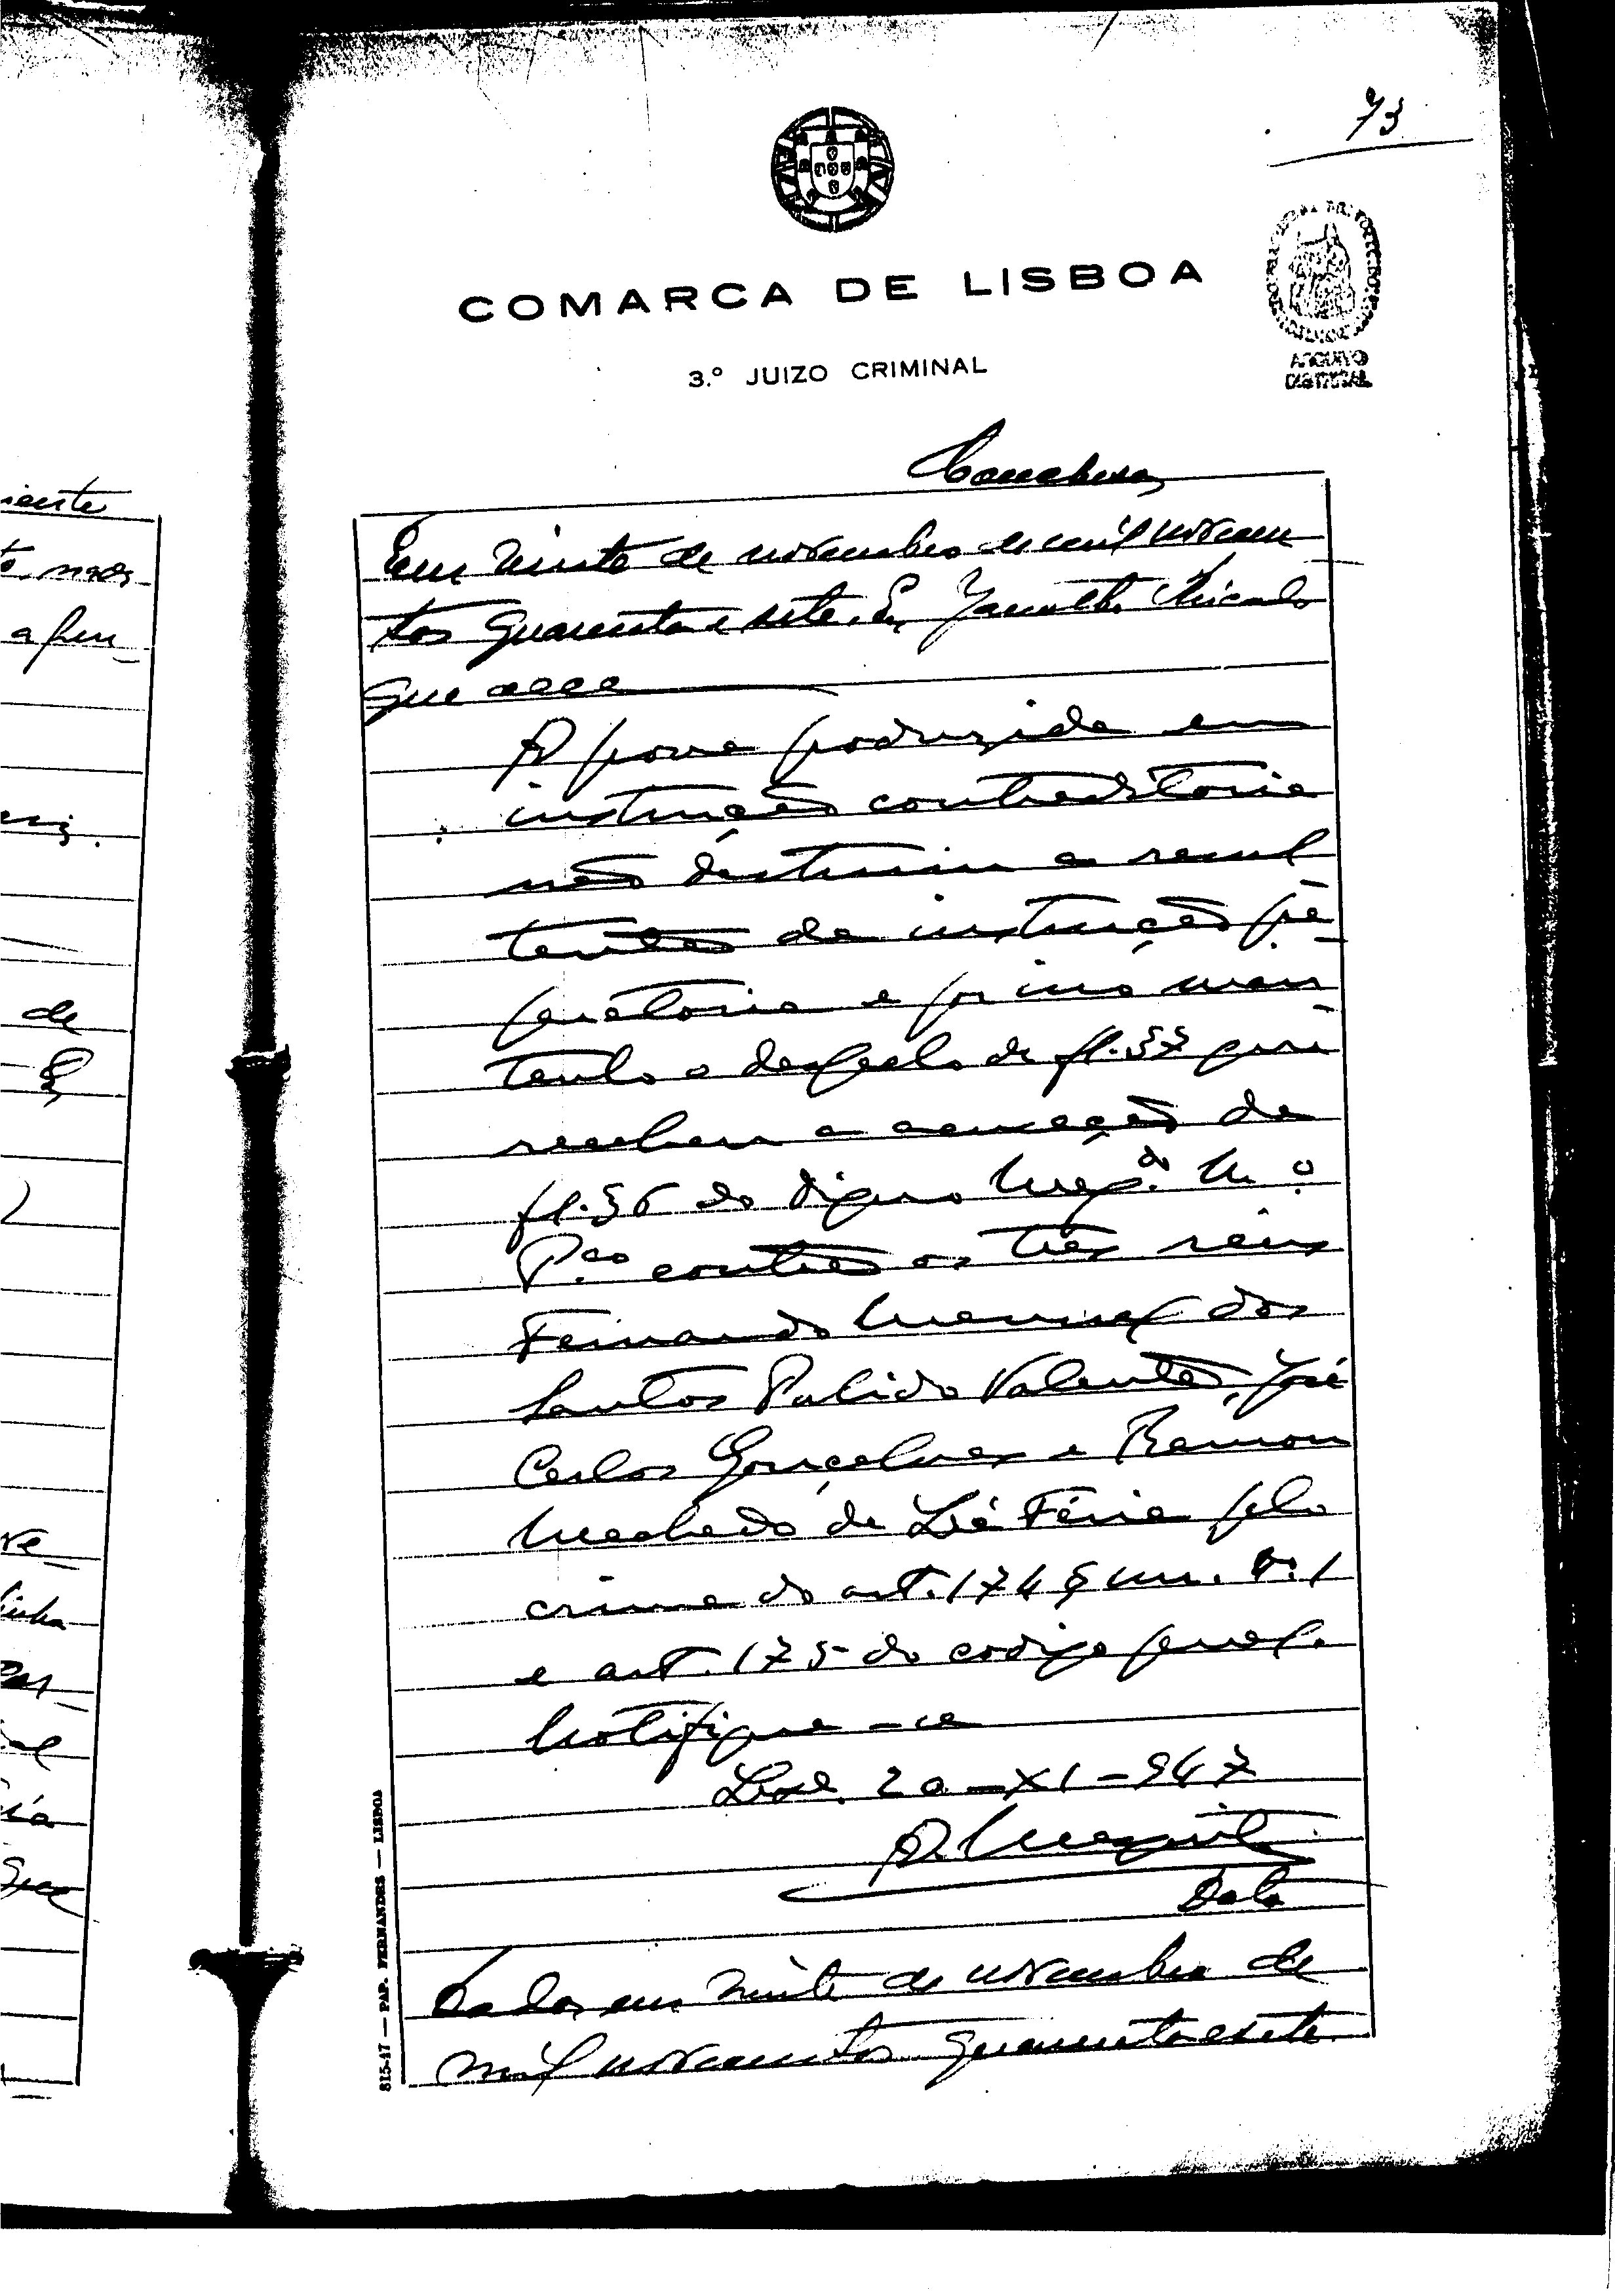 iente
de
73
COMARCA DE LISBOA
3.º JUIZO CRIMINAL
ARQUIVO
DISTRITAL
Conclusão
Em vinte de novembro de mil novecen
tos quarenta e sete. E,
que
A prova produzida em
instrução contraditoria
não destruiu a resul
tante da instrução pre
paratoria e por isso man
tenho o despacho de fl. 37 que
recebeu a acusação de
fl. 36 do Digno Mag.do M.º
P.co contra os três réus
Fernando Manuel dos
Santos Pulido Valente, José
Carlos Gonçalves e Ramon
Machado de La Féria pelo
crime do art. 174 § un. n.º 1
e art. 175 do codigo penal.
Notifique-se
Lisª. 20-XI-947
Data
Dada em vinte de novembro de
mil novecentos quarenta e sete.
815-47 — PAP. FERNANDES — LISBOA